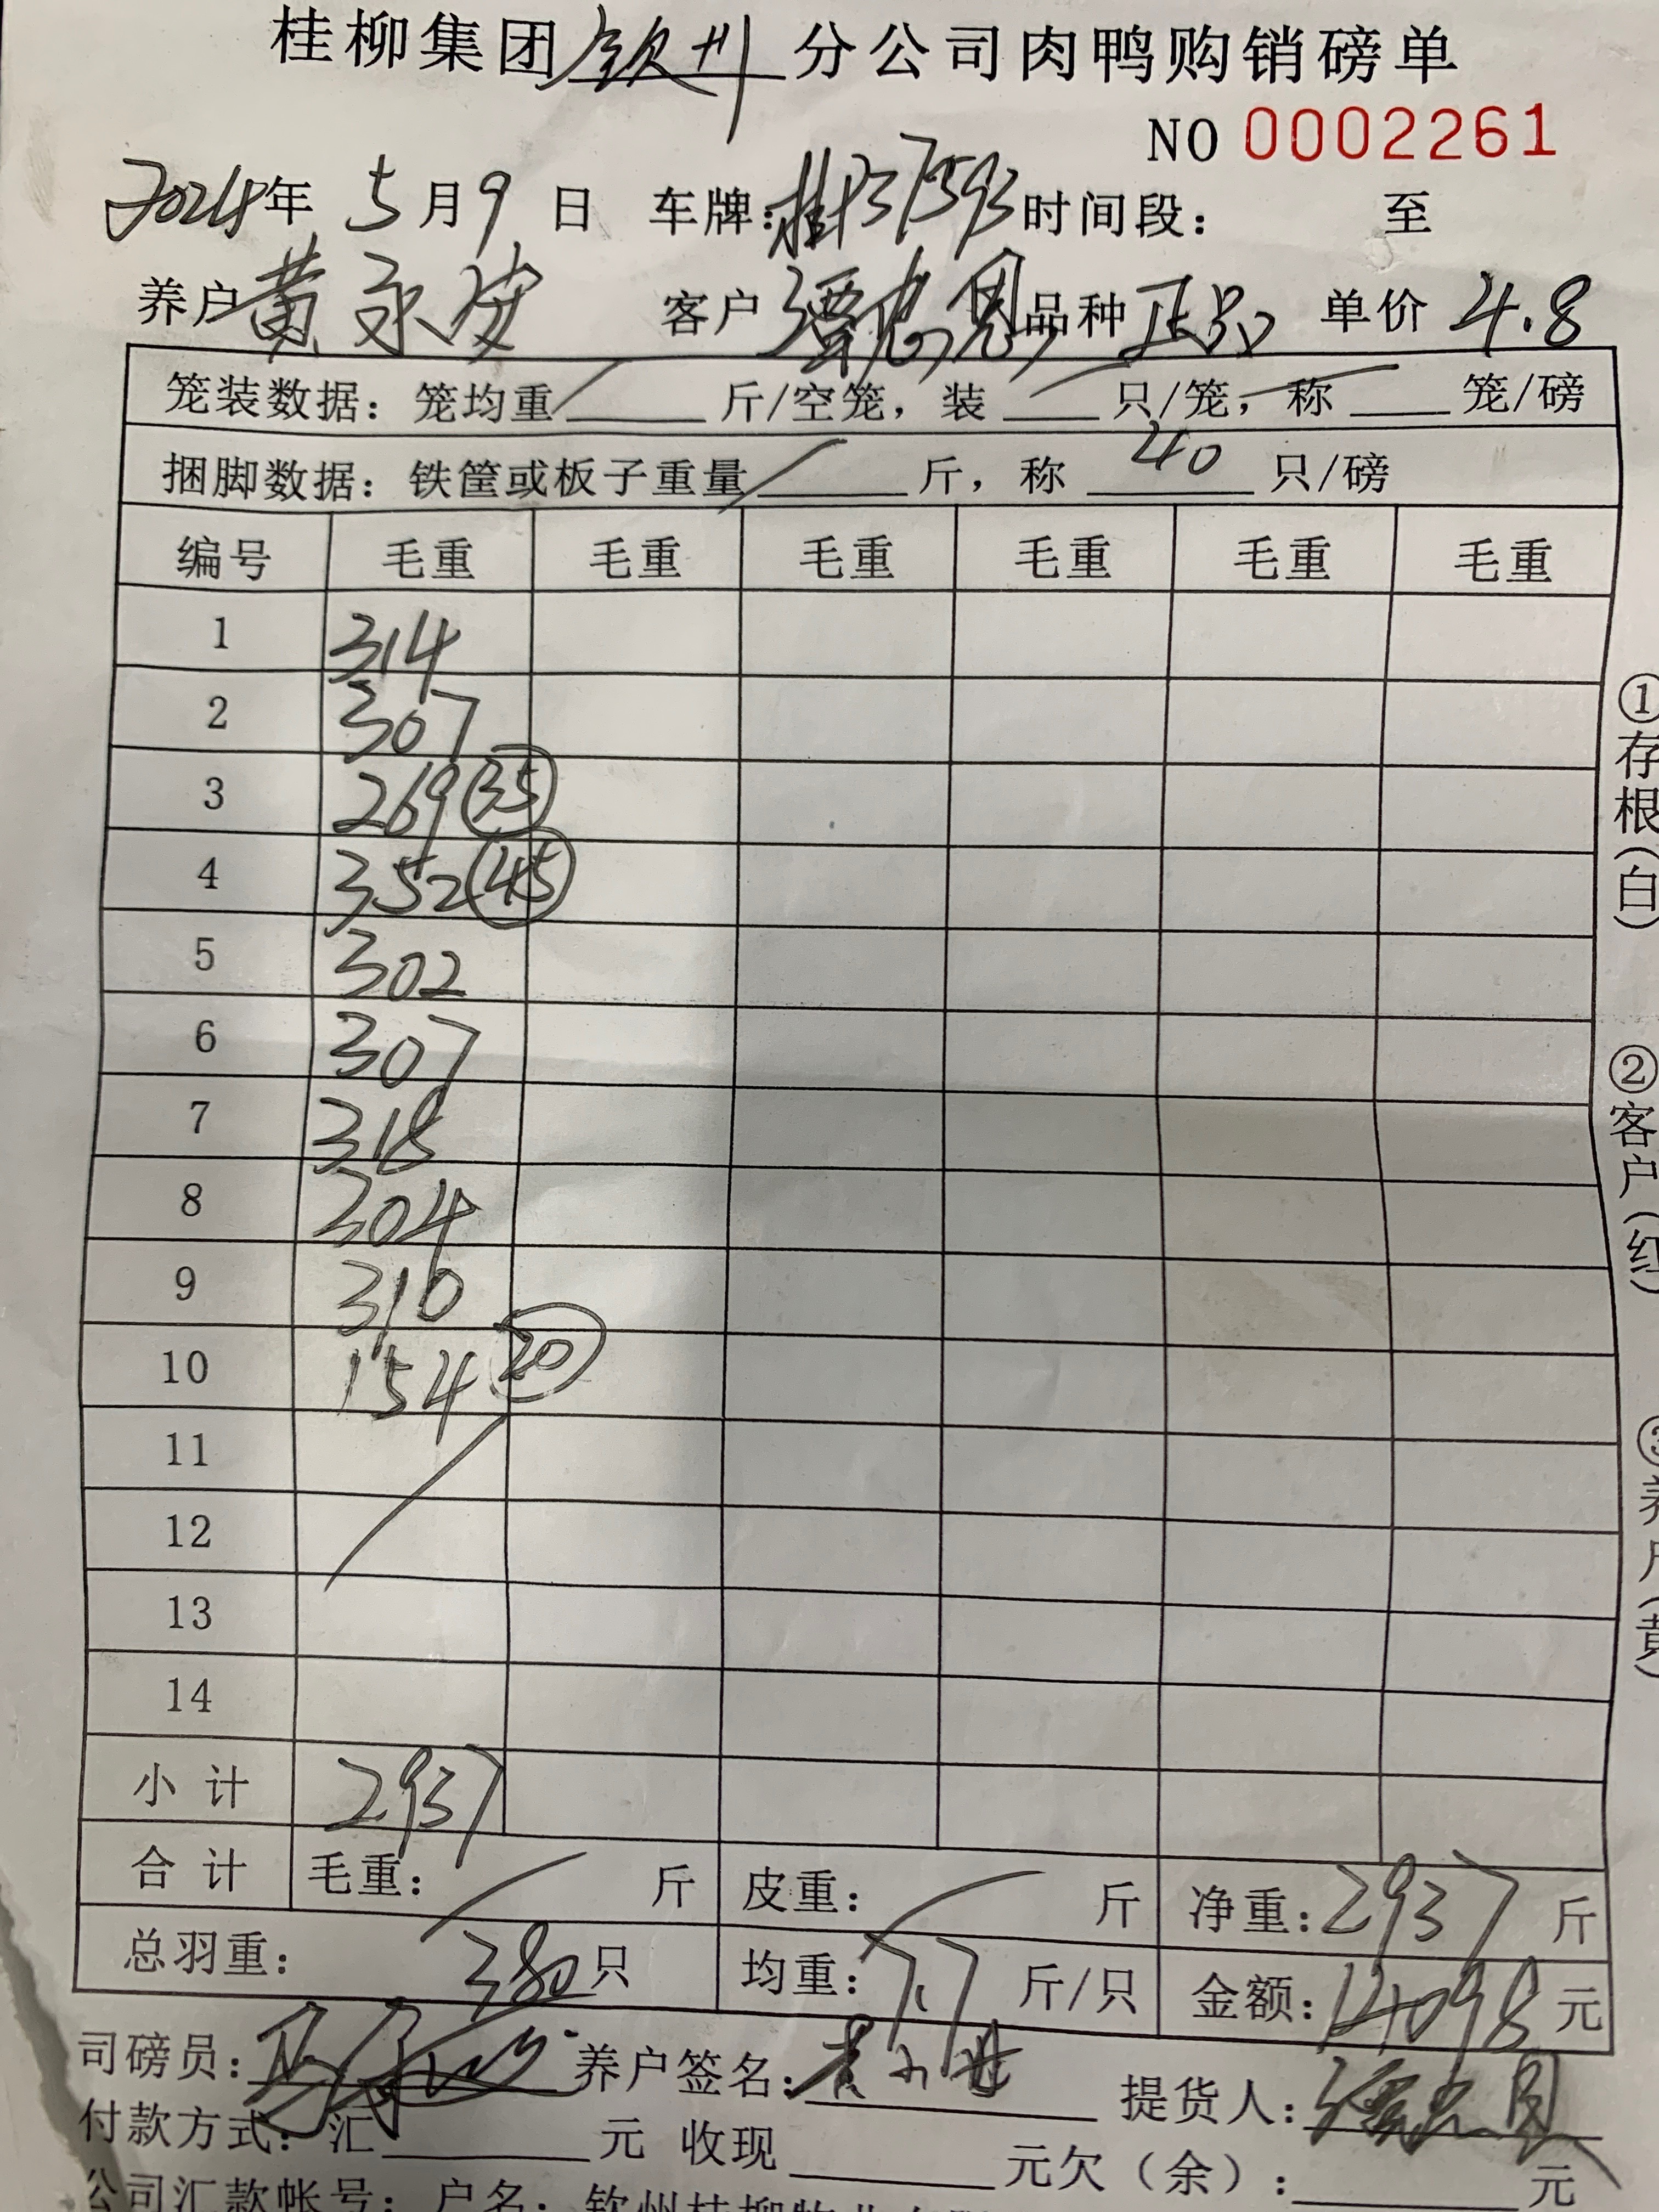 桂柳集团钦州分公司肉鸭购销磅单
NO 0002261
2024年 5月9日 车牌:桂P37593 时间段: 至
养户 黄永安 客户 谭忠恩 品种 正品 单价 4.8
笼装数据: 笼均重 斤/空笼, 装 只/笼, 称 笼/磅
捆脚数据: 铁筐或板子重量 斤, 称 40 只/磅
编号 毛重 毛重 毛重 毛重 毛重 毛重
1 314
2 307
3 269 35
4 352 45
5 302
6 307
7 318
8 304
9 310
10 154 20
11
12
13
14
小计 2937
合计 毛重: 斤 皮重: 斤 净重:2937斤
总羽重: 380只 均重:7.7斤/只 金额:14098元
司磅员: 养户签名: 提货人:
付款方式: 汇 元 收现 元欠(余): 元
公司汇款帐号: 户名: 钦州桂柳牧业有限
①存根(白)
②客户(红)
③养户(黄)